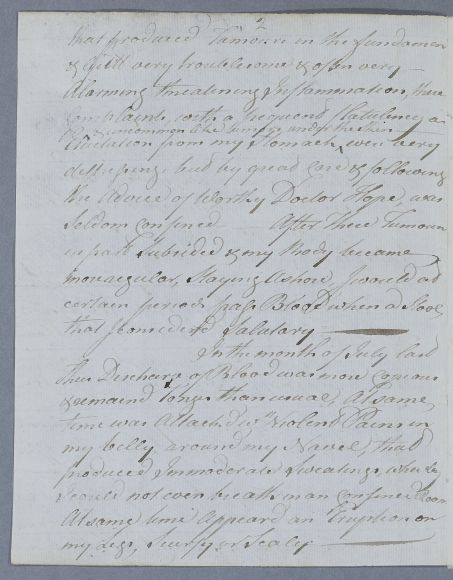 that produced Tumours in the fundamen
& still very troublesome & often very
Alarming threatening Inflammation, these
complaints, with a frequent flatulency &
& uncommon like lumps under the skin
Eructation from my Stomach, were very
distressing but by good care & following
the Advice of Worthy Doctor Hope, was
Seldom confined After these Tumours
in part Subsided & my Body became
more regular, Staying ashore, I would at
certain periods pass Blood when a Stool
that I considered Salutary
In the month of July last
this Discharge of Blood was more copious
& remained longer than usual, At same
time was Attacked wt Violent Pains in
my belly, around my Navel, that
produced Immoderate Sweatings, whereby
I could not even breath in a confined Room
At same time Appeard an Eruption on
my legs, Scurfy or Scaly